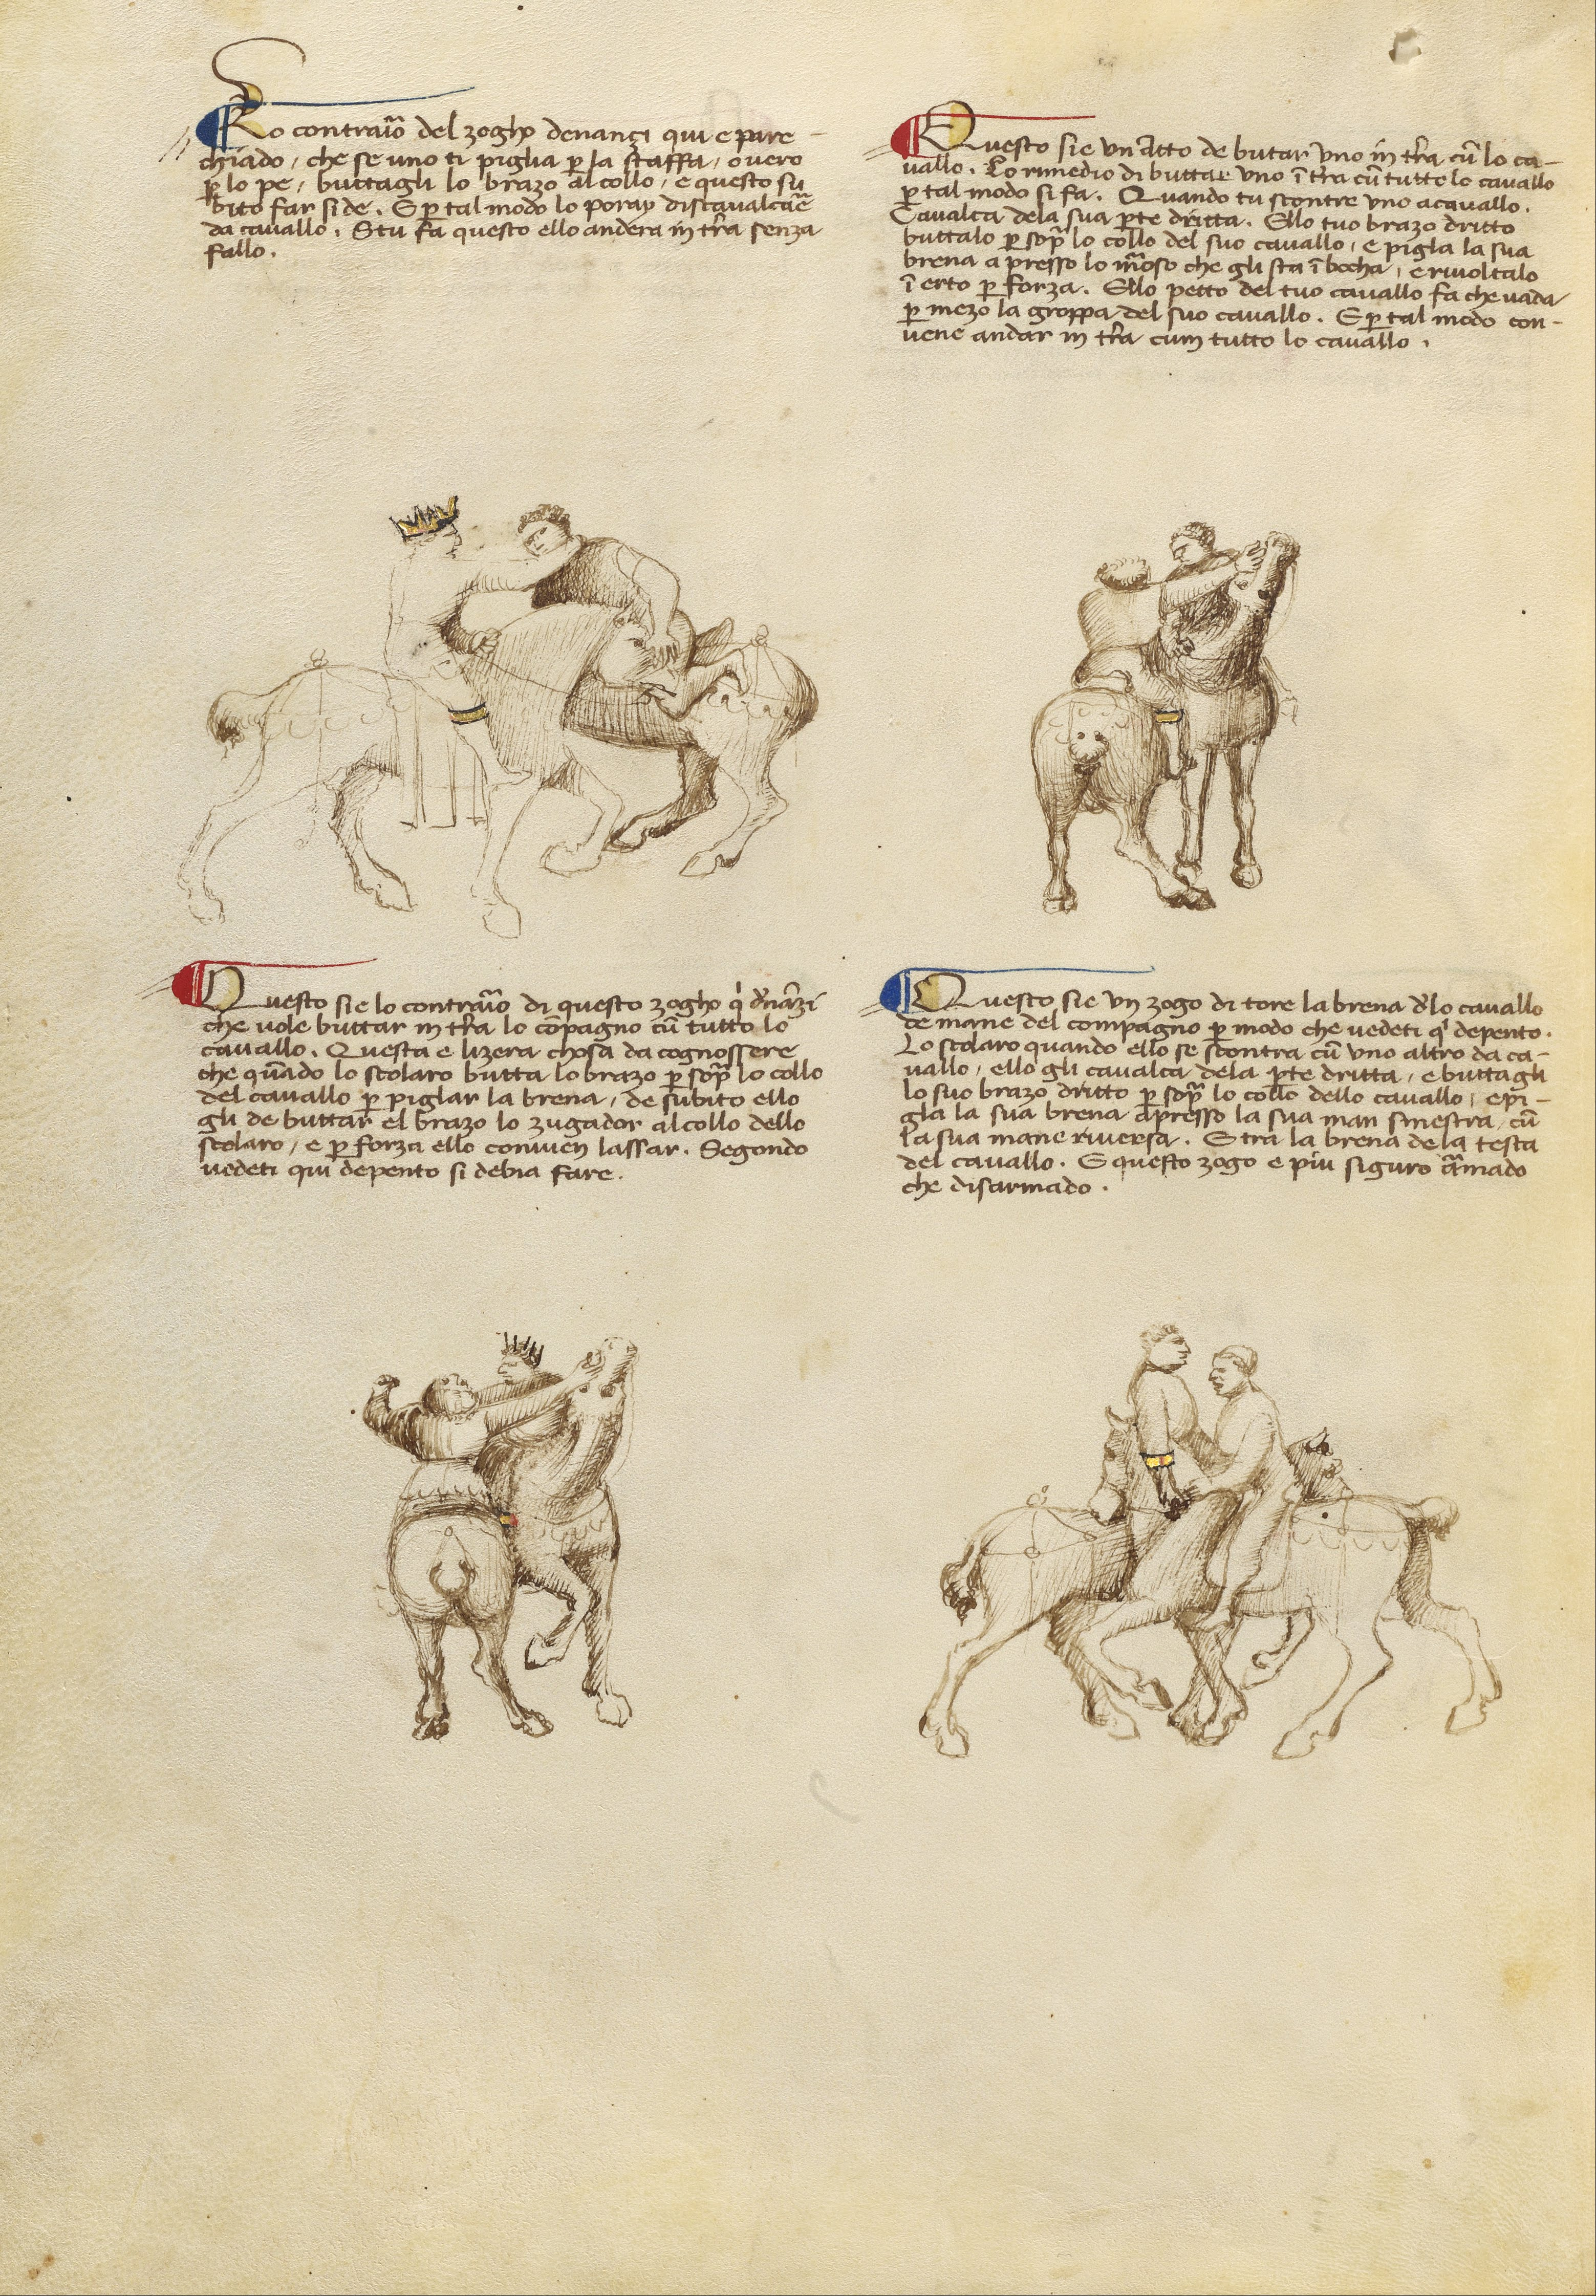 Lo contraio del zogho denançi qui e pare-
chiado, che se uno ti piglia per la staffa, overo
per lo pe, buttagli lo brazo al collo, e questo su
bito far si de. E per tal modo lo poray discavalcare
da cavallo. Stu fa questo ello andera in terra senza
fallo.
Questo sie un atto de butar uno in terra cum lo ca-
vallo. Lo rimedio di buttar uno in terra cum tutto lo cavallo
per tal modo si fa. Quando tu scontre uno a cavallo.
Cavalca dela sua parte dritta. Ello tuo brazo dritto
buttalo per sopra lo collo del suo cavallo, e pigla la sua
brena apresso lo morso che gli sta in bocha, e rivoltalo
in erto per forza. Ello petto del tuo cavallo fa che vada
per mezo la groppa del suo cavallo. E per tal modo con-
vene andar in terra cum tutto lo cavallo.
Questo sie lo contraio di questo zogho qui denanzi
che vole buttar in terra lo compagno cum tutto lo
cavallo. Questa e lizera chosa da cognossere
che quando lo scolaro butta lo brazo per sopra lo collo
del cavallo per piglar la brena, de subito ello
gli de buttar el brazo lo zugador al collo dello
scolaro, e per forza ello conven lassar. Segondo
vedeti qui depento si debia fare.
Questo sie un zogo di tore la brena de lo cavallo
de mane del compagno per modo che vedeti qui depento.
Lo scolaro quando ello se scontra cum uno altro da ca-
vallo, ello gli cavalca dela parte dritta, e buttagli
lo suo brazo dritto per sopra lo collo dello cavallo, e pi-
gla la sua brena apresso la sua man sinestra, cum
la sua mane riversa. E tra la brena dela testa
del cavallo. E questo zogo e piu siguro armado
che disarmado.